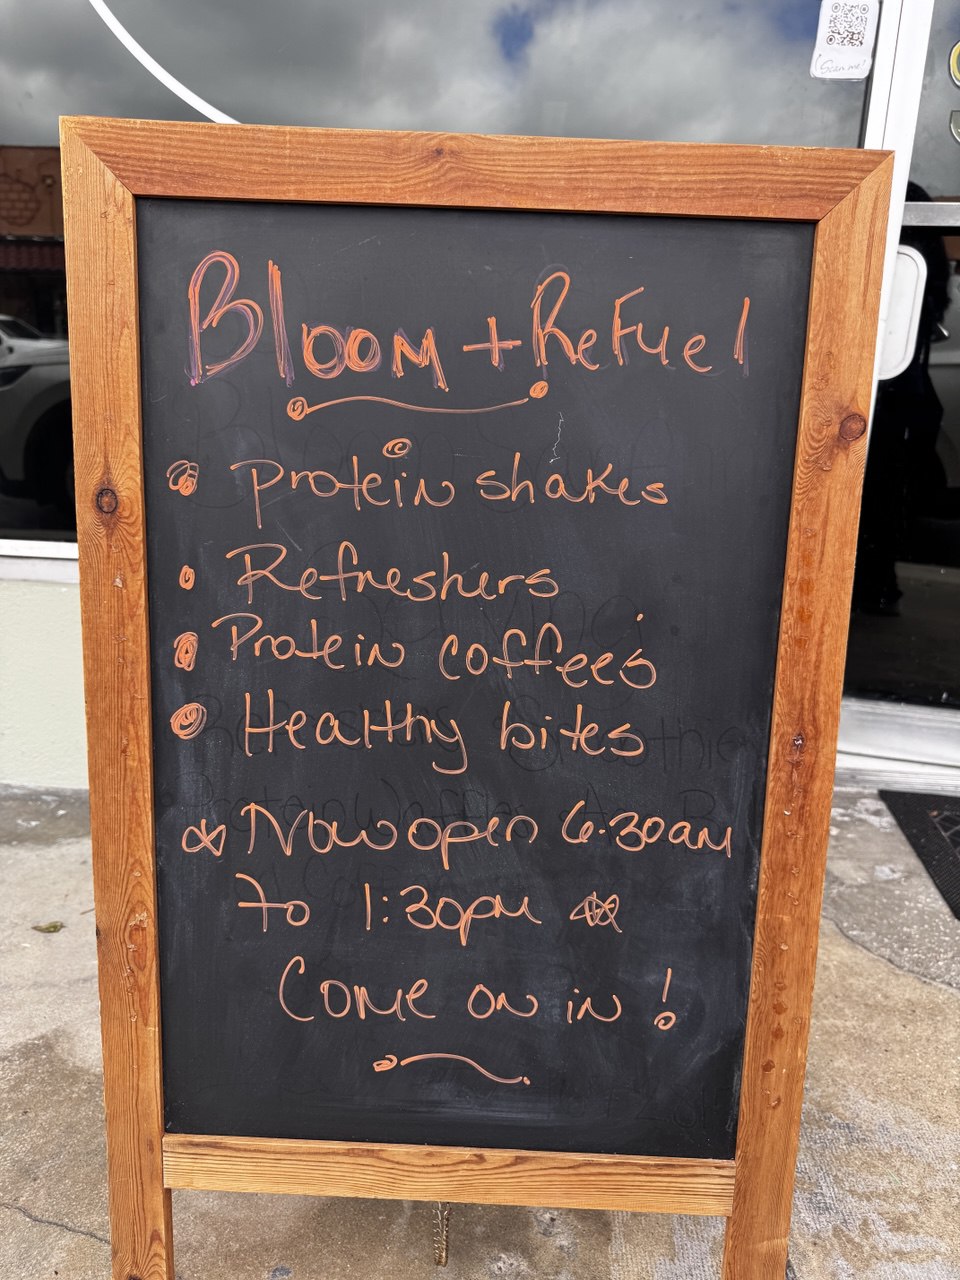 Scan me!
Bloom + ReFuel
Protein shakes
Refreshers
Protein coffee's
Healthy bites
Now open 6:30am
to 1:30pm
Come on in!